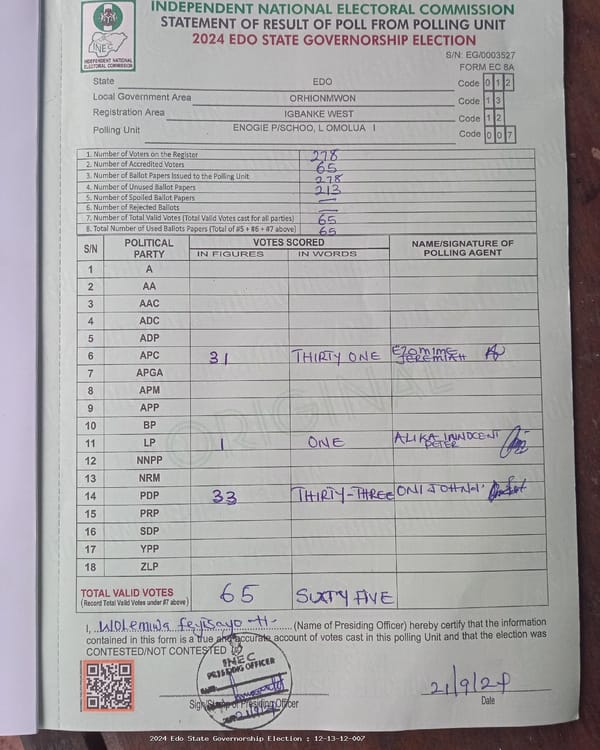 INDEPENDENT NATIONAL ELECTORAL COMMISSION
STATEMENT OF RESULT OF POLL FROM POLLING UNIT
2024 EDO STATE GOVERNORSHIP ELECTION
INEC
INDEPENDENT NATIONAL
ELECTORAL COMMISSION
S/N: EG/0003527
FORM EC 8A
State EDO Code 0 1 2
Local Government Area ORHIONMWON Code 1 3
Registration Area IGBANKE WEST Code 1 2
Polling Unit ENOGIE P/SCHOO, L OMOLUA I Code 0 0 7
1. Number of Voters on the Register 278
2. Number of Accredited Voters 65
3. Number of Ballot Papers Issued to the Polling Unit 278
4. Number of Unused Ballot Papers 213
5. Number of Spoiled Ballot Papers —
6. Number of Rejected Ballots —
7. Number of Total Valid Votes (Total Valid Votes cast for all parties) 65
8. Total Number of Used Ballots Papers (Total of #5 + #6 + #7 above) 65
S/N POLITICAL PARTY VOTES SCORED NAME/SIGNATURE OF POLLING AGENT
IN FIGURES IN WORDS
1 A
2 AA
3 AAC
4 ADC
5 ADP
6 APC 31 THIRTY ONE EZOMIME JEREMIAH
7 APGA
8 APM
9 APP
10 BP
11 LP 1 ONE ALIKA INNOCENT PETER
12 NNPP
13 NRM
14 PDP 33 THIRTY-THREE ONI JOHN
15 PRP
16 SDP
17 YPP
18 ZLP
ORIGINAL
TOTAL VALID VOTES 65 SIXTY FIVE
(Record Total Valid Votes under #7 above)
I, Wolemiwa Feyisayo H. (Name of Presiding Officer) hereby certify that the information
contained in this form is a true and accurate account of votes cast in this polling Unit and that the election was
CONTESTED/NOT CONTESTED
INEC
PRESIDING OFFICER
21/9/24
Sign Stamp of Presiding Officer
Date
2024 Edo State Governorship Election : 12-13-12-007